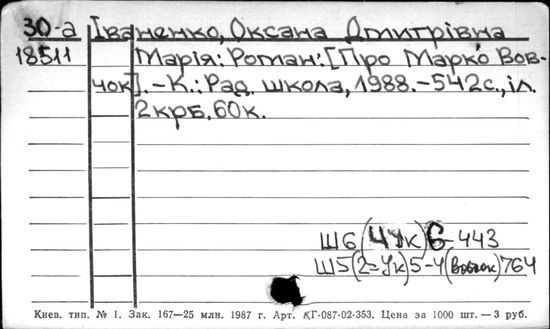 30-а Іваненко, Оксана Дмитрівна
18511 Марія: Роман: [Про Марко Вов-
чок]. – К.: Рад. школа, 1988. – 542 с., іл.
2 крб. 60 к.
Ш6(4Ук)6-443
Ш5(2=Ук)5-4(Вовчок)764
Киев. тип. № 1. Зак. 167—25 млн. 1987 г. Арт. КГ-087-02-353. Цена за 1000 шт. — 3 руб.